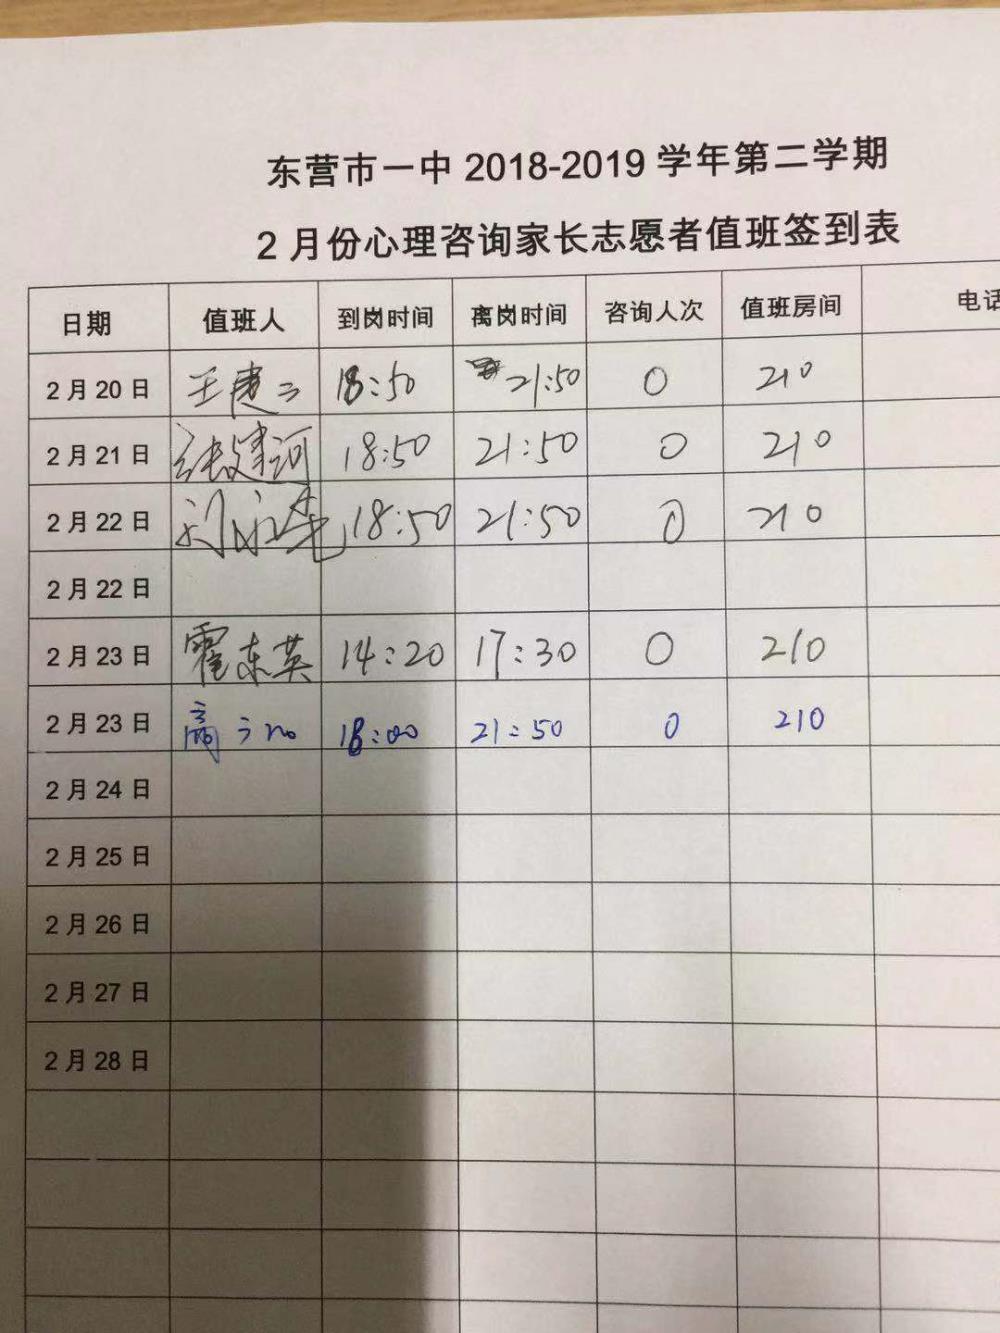 东营市一中 2018-2019 学年第二学期
2 月份心理咨询家长志愿者值班签到表
日期 值班人 到岗时间 离岗时间 咨询人次 值班房间 电话
2 月 20 日 18:50 21:50 0 210
2 月 21 日 张建河 18:50 21:50 0 210
2 月 22 日 18:50 21:50 0 210
2 月 22 日
2 月 23 日 霍东英 14:20 17:30 0 210
2 月 23 日 18:00 21:50 0 210
2 月 24 日
2 月 25 日
2 月 26 日
2 月 27 日
2 月 28 日